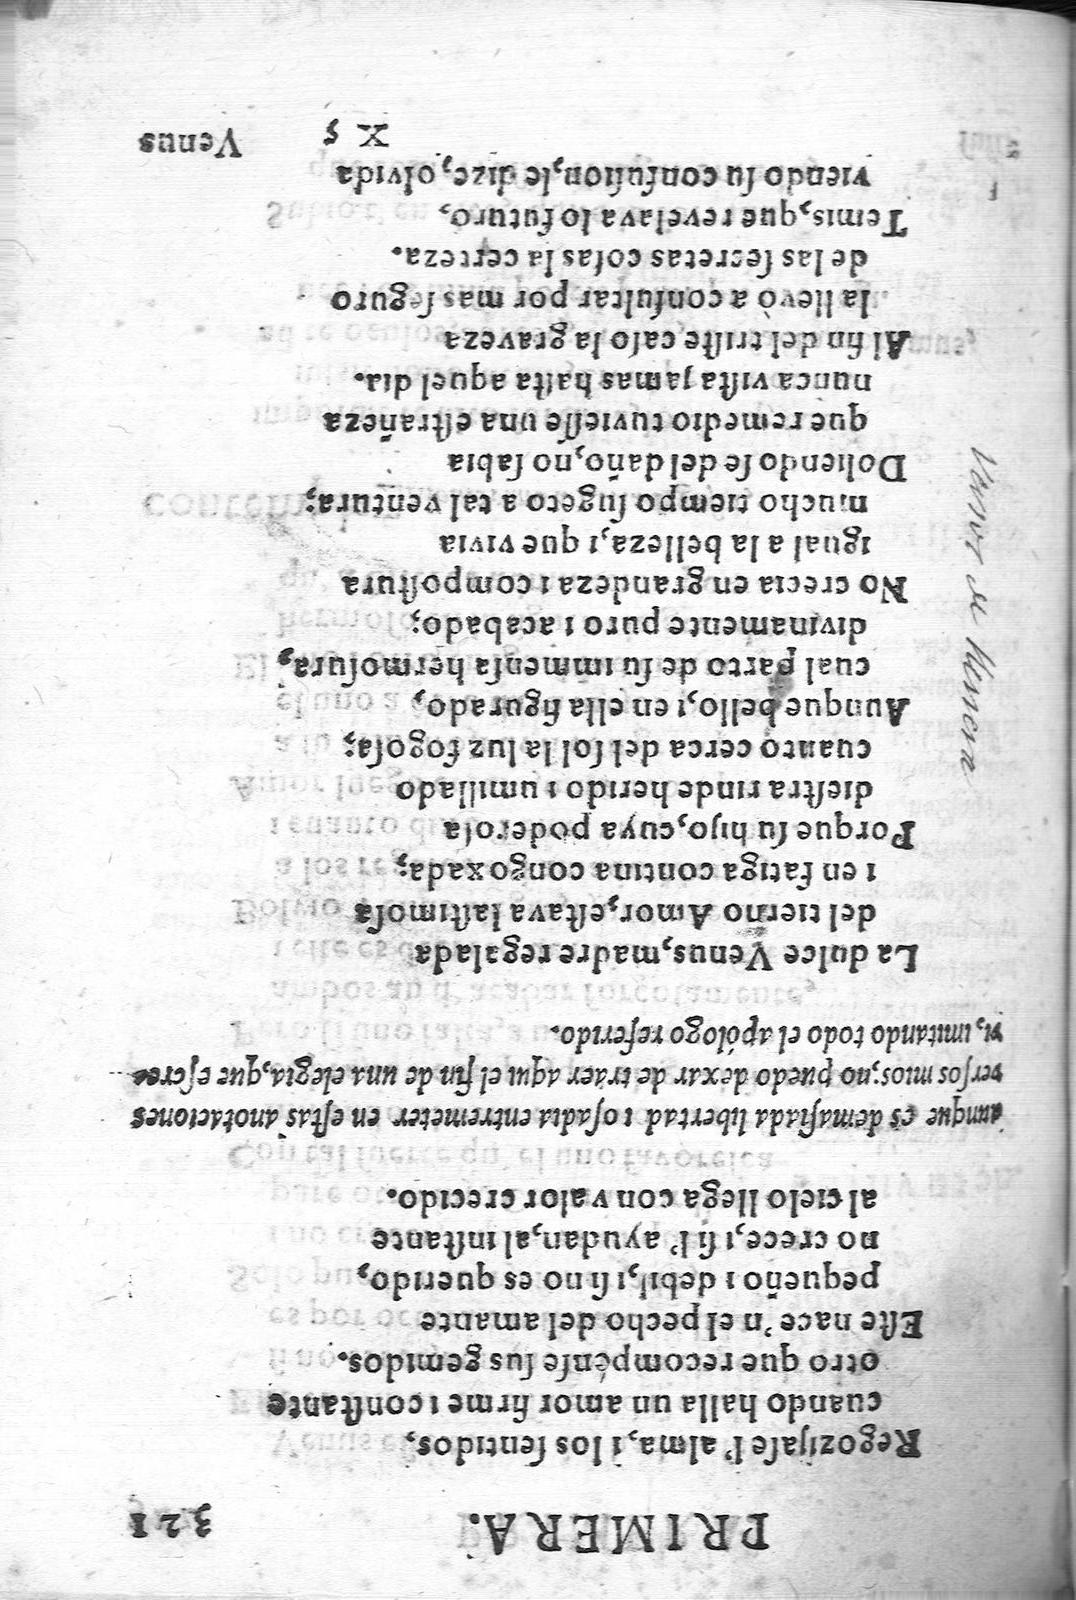 PRIMERA. 321
Regozijase l'alma, i los ſentidos,
cuando halla un amor firme i conſtante
otro que recompénſe ſus gemidos.
Eſte nace 'n el pecho del amante
pequeño i debil, i ſi no es querido,
no crece, i ſi l' ayudan, al inſtante
al cielo llega con valor crecido.
aunque es demaſiada libertad i oſadia entremeter en eſtas anotaciones
verſos mios; no puedo dexar de traer aqui el fin de una elegia, que eſcre
vi, imitando todo el apólogo referido.
La dulce Venus, madre regalada
del tierno Amor, eſtava laſtimoſa
i en fatiga contina congoxada;
Porque ſu hijo, cuya poderoſa
dieſtra rinde herido i umillado
cuanto cerca del ſol la luz fogoſa;
Aunque bello, i en ella figurado,
cual parto de ſu immenſa hermoſura,
divinamente puro i acabado;
No crecia en grandeza i compoſtura
igual a la belleza, i que vivia
mucho tiempo ſugeto a tal ventura;
Doliendo ſe del daño, no ſabia
que remedio tuvieſſe una eſtrañeza
nunca viſta jamas haſta aquel dia.
Al fin del triſte caſo la graveza
la llevò a conſultar por mas ſeguro
de las ſecretas coſas la certeza.
Temis, que revelava lo futuro,
viendo ſu confuſion, le dize, olvida
X 5 Venus
Versos de Herrera